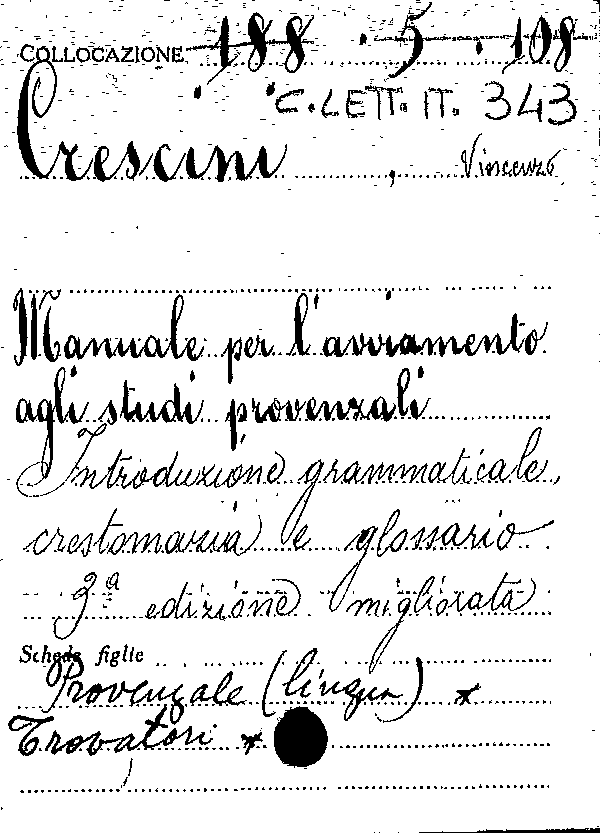 COLLOCAZIONE 188 . 5 . 108
C. LETT. IT. 343
Crescini, Vincenzo
Manuale per l'avviamento
agli studi provenzali
Introduzione grammaticale,
crestomazia e glossario.
3ª edizione migliorata
Schede figlie
Provenzale (lingua) *
Trovatori *